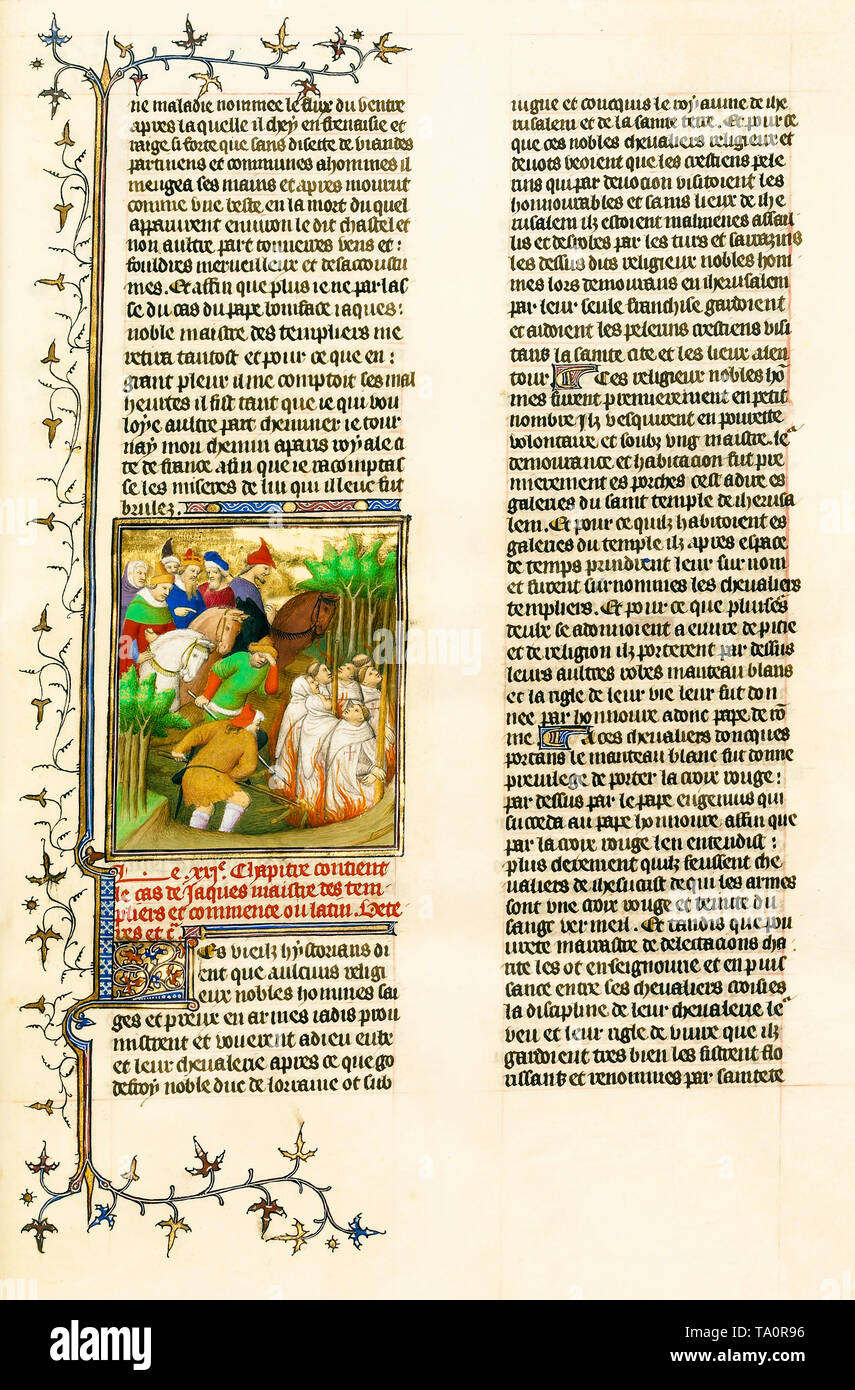 ne maladie nommee le flux du ventre
apres la quelle il chey en frenaisie et
raige si forte que sans disette de viandes
partinens et communes a hommes il
mengea ses mains et apres mourut
comme une beste en la mort du quel
apparurent environ le dit chastel et
non aultre part tonnerres vens et :
fouldres merveilleux et desaccoustu
mes. Et affin que plus ie ne parlas
se du cas du pape boniface iaques :
noble maistre des templiers me
retira tantost et pour ce que en :
grant pleur il me comptoit ses mal
heurtes il fist tant que ie qui vou
loye aultre part cheminer ie tour
nay mon chemin a paris royale ci
te de france afin que ie racomptas
se les miseres de lui qui illeuc fut
brulez.
Le .xxi.e Chapitre contient
le cas de Jaques maistre des tem-
pliers et commence ou latin. Vete
res et c.
Les vieilz hystorians di
ent que aulcuns religi
eux nobles hommes sai
ges et preux en armes iadis prou
mistrent et vouerent a dieu eulx
et leur chevalerie apres ce que go
deffroy noble duc de lorraine ot sub
iugue et conquis le royaume de ihe
rusalem et de la sainte terre. Et pour ce
que ces nobles chevaliers religieux et
devots veoient que les crestiens pele
rins qui par devocion visitoient les
honnourables et sains lieux de ihe
rusalem ilz estoient malmenes assail
lis et desrobes par les turs et sarrazins
les dessus dits religieux nobles hom
mes lors demourans en iherusalem
par leur seule franchise gardoient
et aidoient les pelerins crestiens visi
tans la sainte cite et les lieux alen
tour Ces religieux nobles hõ
mes furent premierement en petit
nombre Ilz vesquirent en povrette
volontaire et soubz ung maistre. le
demourance et habitacion fut pre
mierement es porches cest a dire es
galeries du saint temple de iherusa
lem. Et pour ce quilz habitoient es
galeries du temple ilz apres espace
de temps prindrent leur sur nom
et furent surnommes les chevaliers
templiers. Et pour ce que pluisẽs
deulx se adonnoient a euvre de pitie
et de religion ilz porterent par dessus
leurs aultres robes manteau blans
et la rigle de leur vie leur fut don
nee par honnoure adonc pape de rõ
me A ces chevaliers doncques
portans le manteau blanc fut donne
previlege de porter la croix rouge :
par dessus par le pape eugenius qui
succeda au pape honnoure affin que
par la croix rouge len entendist :
plus clerement quilz feussent che
valiers de ihesucrist de qui les armes
sont une croix rouge et teinte du
sang vermeil. Et tandis que pou
vrete marrastre de delectacions cha
rite les ot enseignoune et en puis
sance entre ses chevaliers croisies
la discipline de leur chevalerie le
veu et leur rigle de vivre que ilz
gardoient tres bien les fistrent flo
rissans et renommes par saintete
alamy
Image ID: TA0R96
www.alamy.com